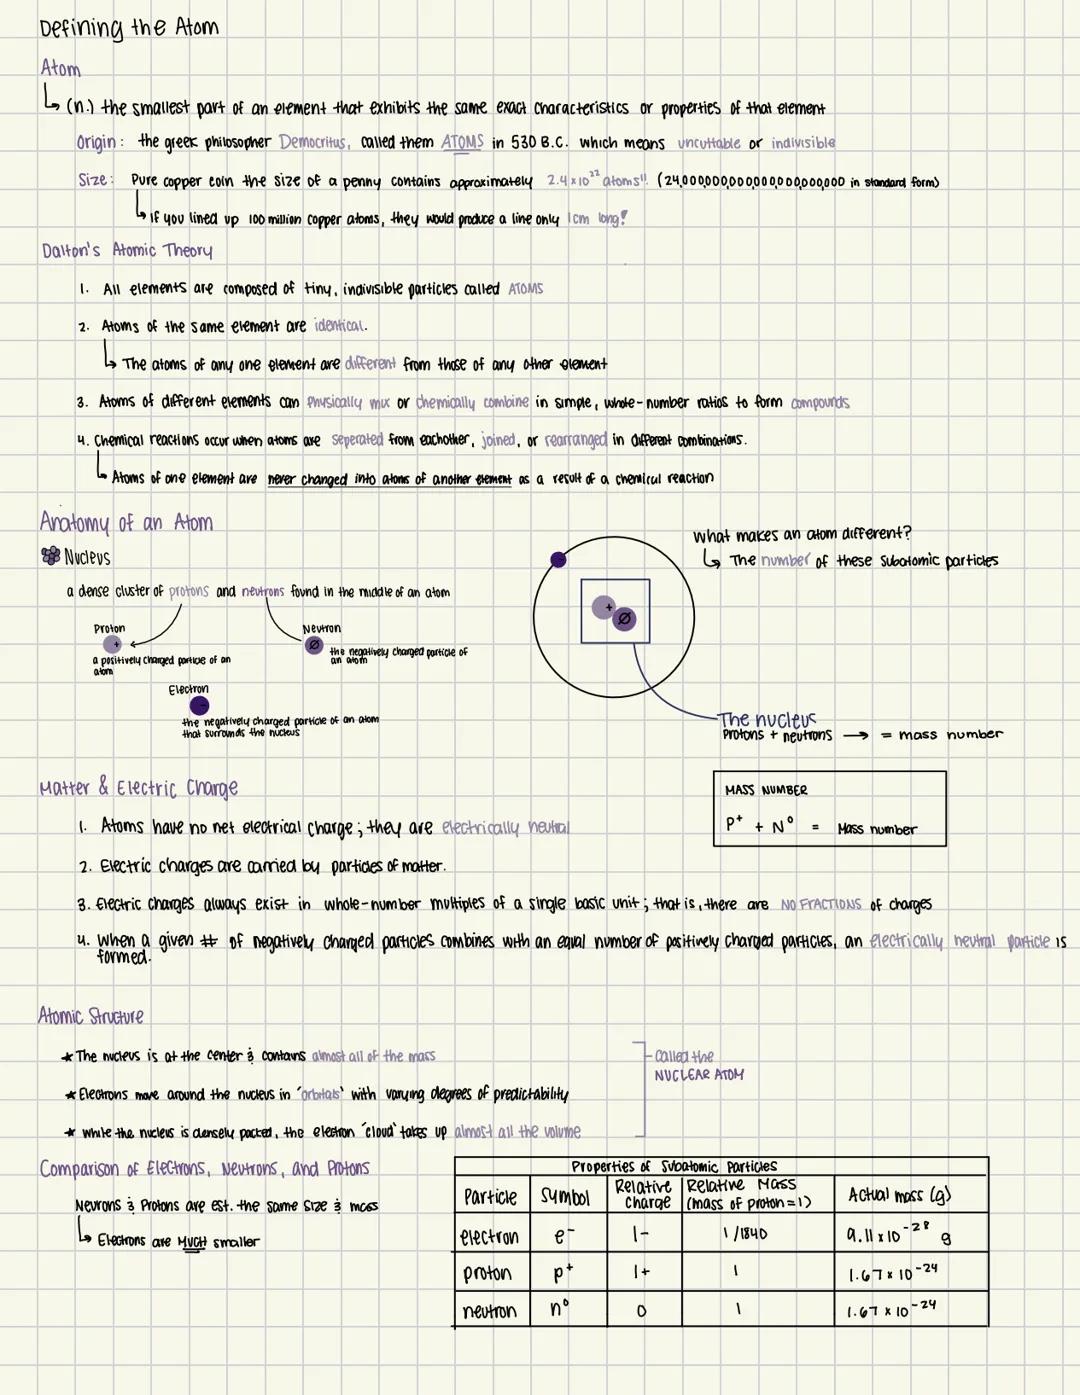 Defining the Atom
Atom
↳ (n.) the smallest part of an element that exhibits the same exact characteristics or properties of that element
Origin: the greek philosopher Democritus, called them ATOMS in 530 B.C. which means uncuttable or indivisible
Size: Pure copper coin the size of a penny contains approximately 2.4 x 10²² atoms!! (24,000,000,000,000,000,000,000 in standard form)
↳ If you lined up 100 million copper atoms, they would produce a line only 1cm long!
Dalton's Atomic Theory
1. All elements are composed of tiny, indivisible particles called ATOMS
2. Atoms of the same element are identical.
↳ The atoms of any one element are different from those of any other element
3. Atoms of different elements can physically mix or chemically combine in simple, whole-number ratios to form compounds
4. Chemical reactions occur when atoms are seperated from eachother, joined, or rearranged in different combinations.
↳ Atoms of one element are never changed into atoms of another element as a result of a chemical reaction
Anatomy of an Atom
Nucleus
a dense cluster of protons and neutrons found in the middle of an atom
Proton
+
a positively charged particle of an
atom
Neutron
Ø
the negatively charged particle of
an atom
Electron
-
the negatively charged particle of an atom
that surrounds the nucleus
What makes an atom different?
↳ The number of these subatomic particles
+
Ø
The nucleus
Protons + neutrons → = mass number
MASS NUMBER
P⁺ + N⁰ = Mass number
Matter & Electric Charge
1. Atoms have no net electrical charge; they are electrically neutral
2. Electric charges are carried by particles of matter.
3. Electric charges always exist in whole-number multiples of a single basic unit; that is, there are NO FRACTIONS of charges
4. When a given # of negatively charged particles combines with an equal number of positively charged particles, an electrically neutral particle is
formed.
Atomic Structure
★ The nucleus is at the center & contains almost all of the mass
★ Electrons move around the nucleus in 'orbitals' with varying degrees of predictability
★ while the nucleus is densely packed, the electron 'cloud' takes up almost all the volume
Called the
NUCLEAR ATOM
Comparison of Electrons, Neutrons, and Protons
Neurons & Protons are est. the same size & mass
↳ Electrons are MUCH smaller
Properties of Subatomic Particles
Particle Symbol Relative Charge Relative Mass (mass of proton=1) Actual mass (g)
electron e⁻ 1- 1/1840 9.11 x 10⁻²⁸ g
proton p⁺ 1+ 1 1.67 x 10⁻²⁴
neutron n⁰ 0 1 1.67 x 10⁻²⁴